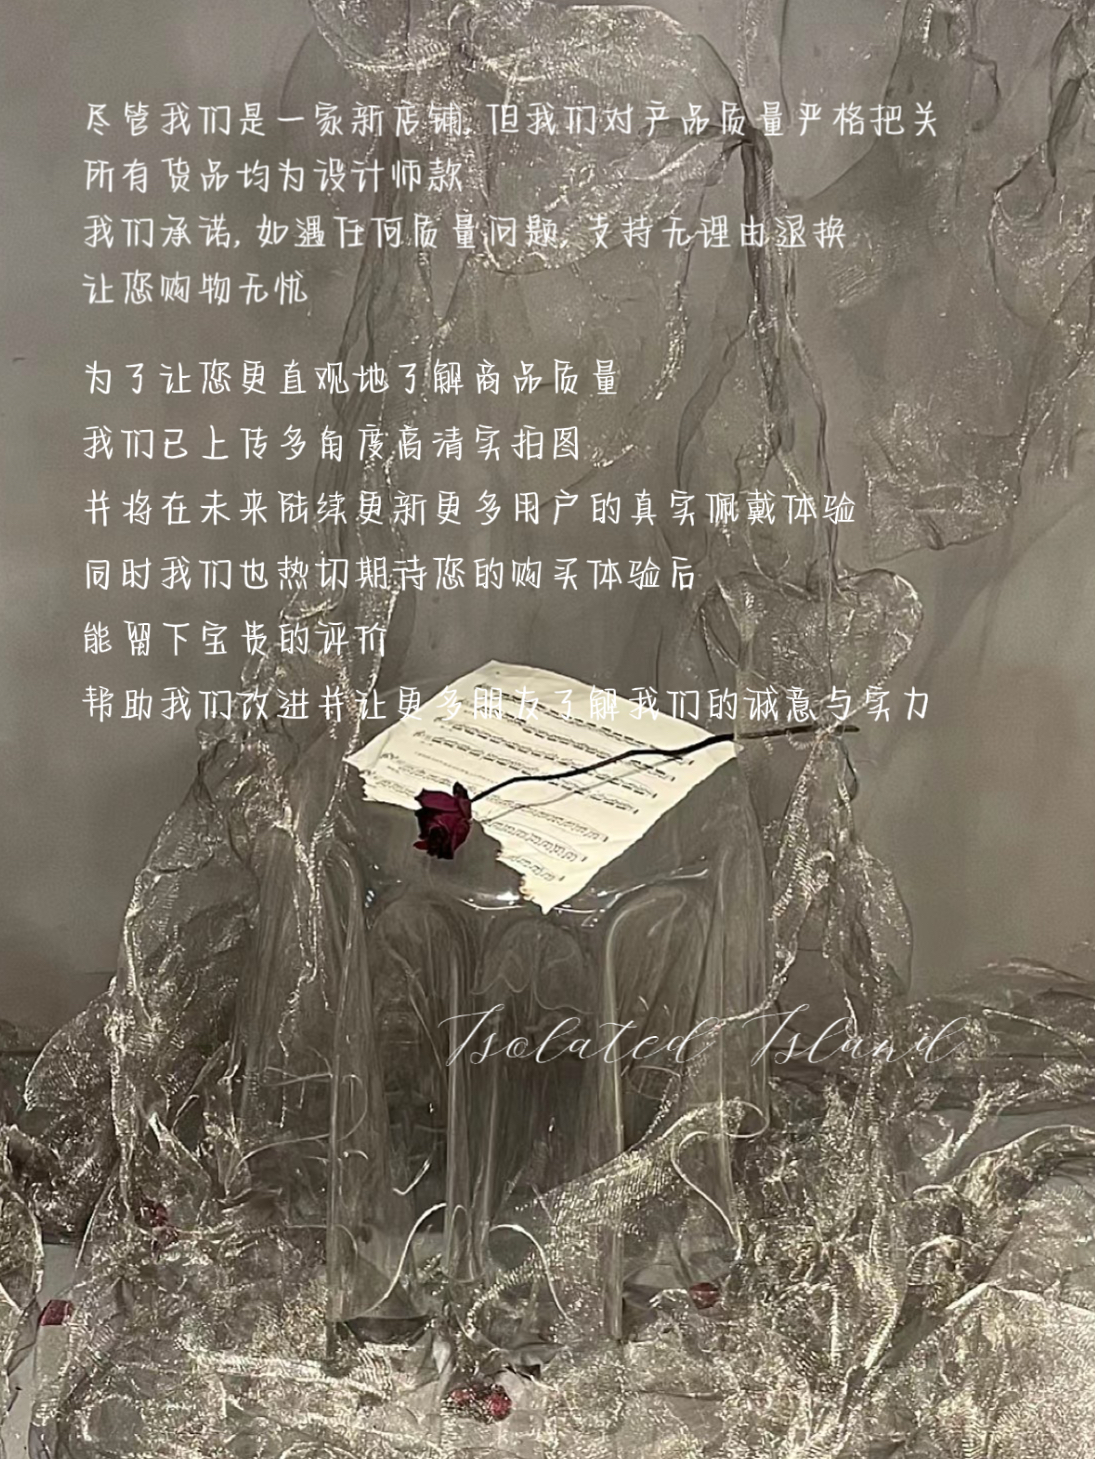 尽管我们是一家新店铺, 但我们对产品质量严格把关
所有货品均为设计师款
我们承诺, 如遇任何质量问题, 支持无理由退换
让您购物无忧
为了让您更直观地了解商品质量
我们已上传多角度高清实拍图
并将在未来陆续更新更多用户的真实佩戴体验
同时我们也热切期待您的购买体验后
能留下宝贵的评价
帮助我们改进并让更多朋友了解我们的诚意与实力
Isolated Island